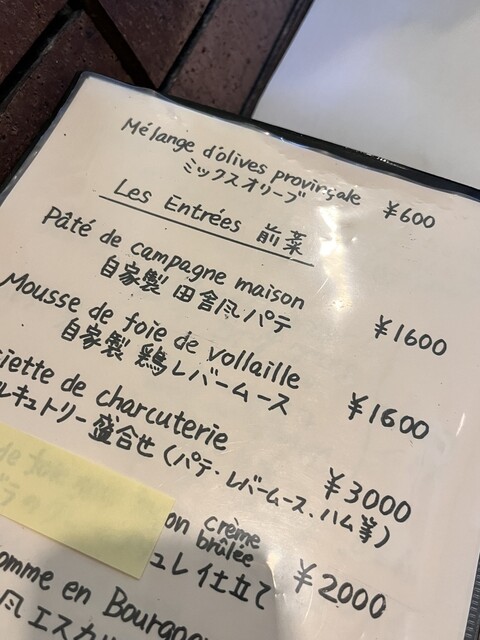 Mélange d'olives provinçale ¥600
ミックスオリーブ
Les Entrées 前菜
Pâté de campagne maison ¥1600
自家製 田舎風パテ
Mousse de foie de vollaille ¥1600
自家製 鶏レバームース
iette de charcuterie ¥3000
ルキュトリー盛合せ(パテ・レバームース、ハム等)
on crème
brûlée ¥2000
ュレ仕立て
omme en Bourgogn
風エスカル